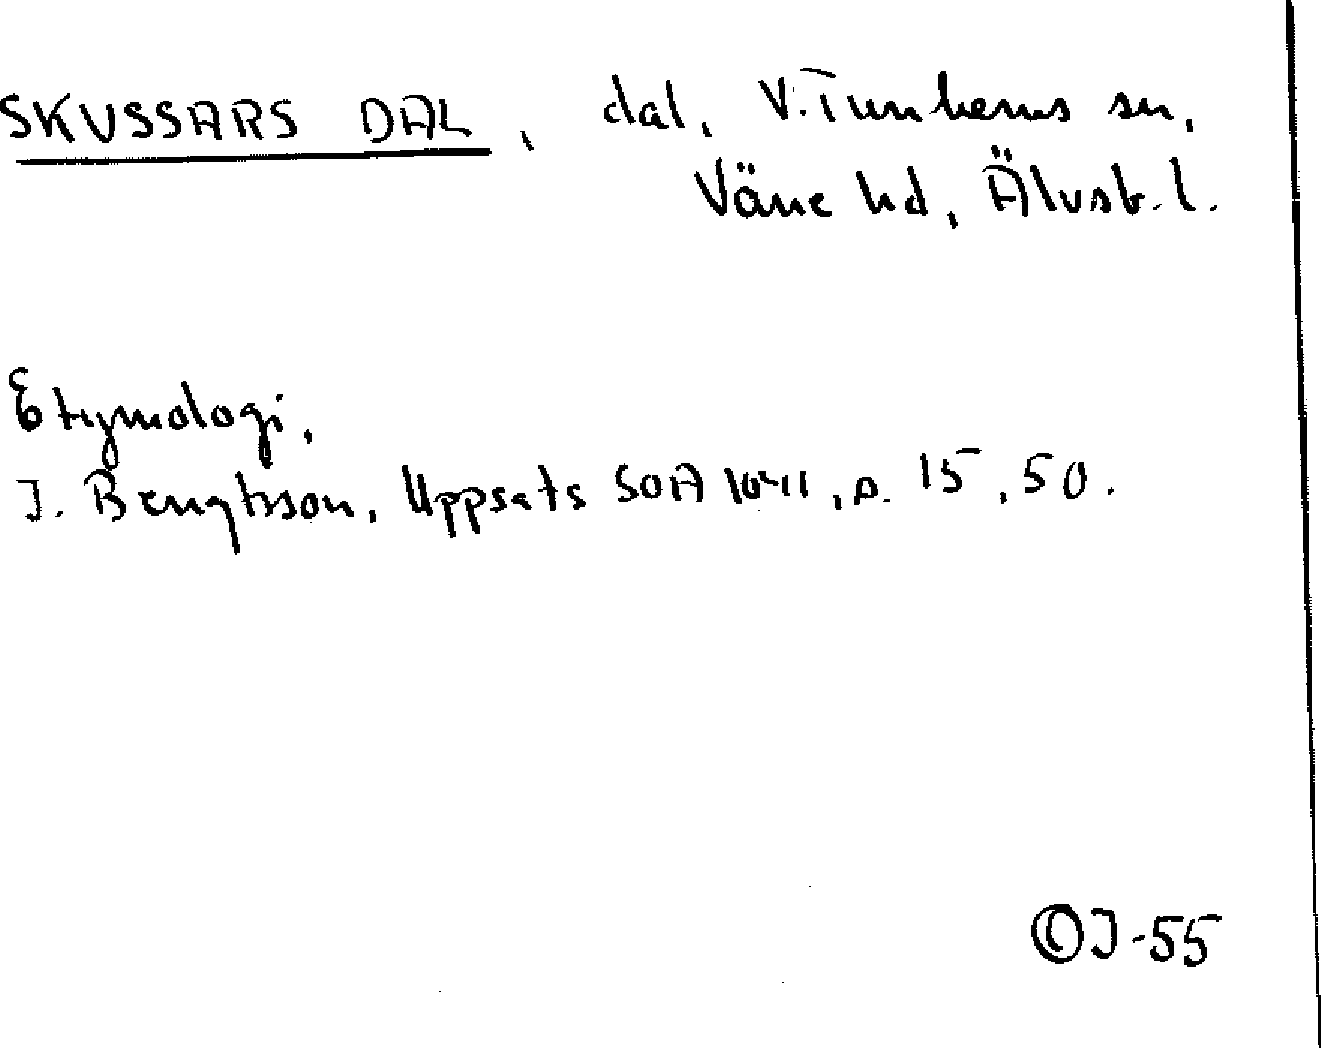 SKUSSARS DAL, dal, V. Tunhems sn,
Väne hd, Älvsb. l.
Etymologi.
J. Bengtsson, Uppsats SOA 1041, s. 15, 50.
©J-55